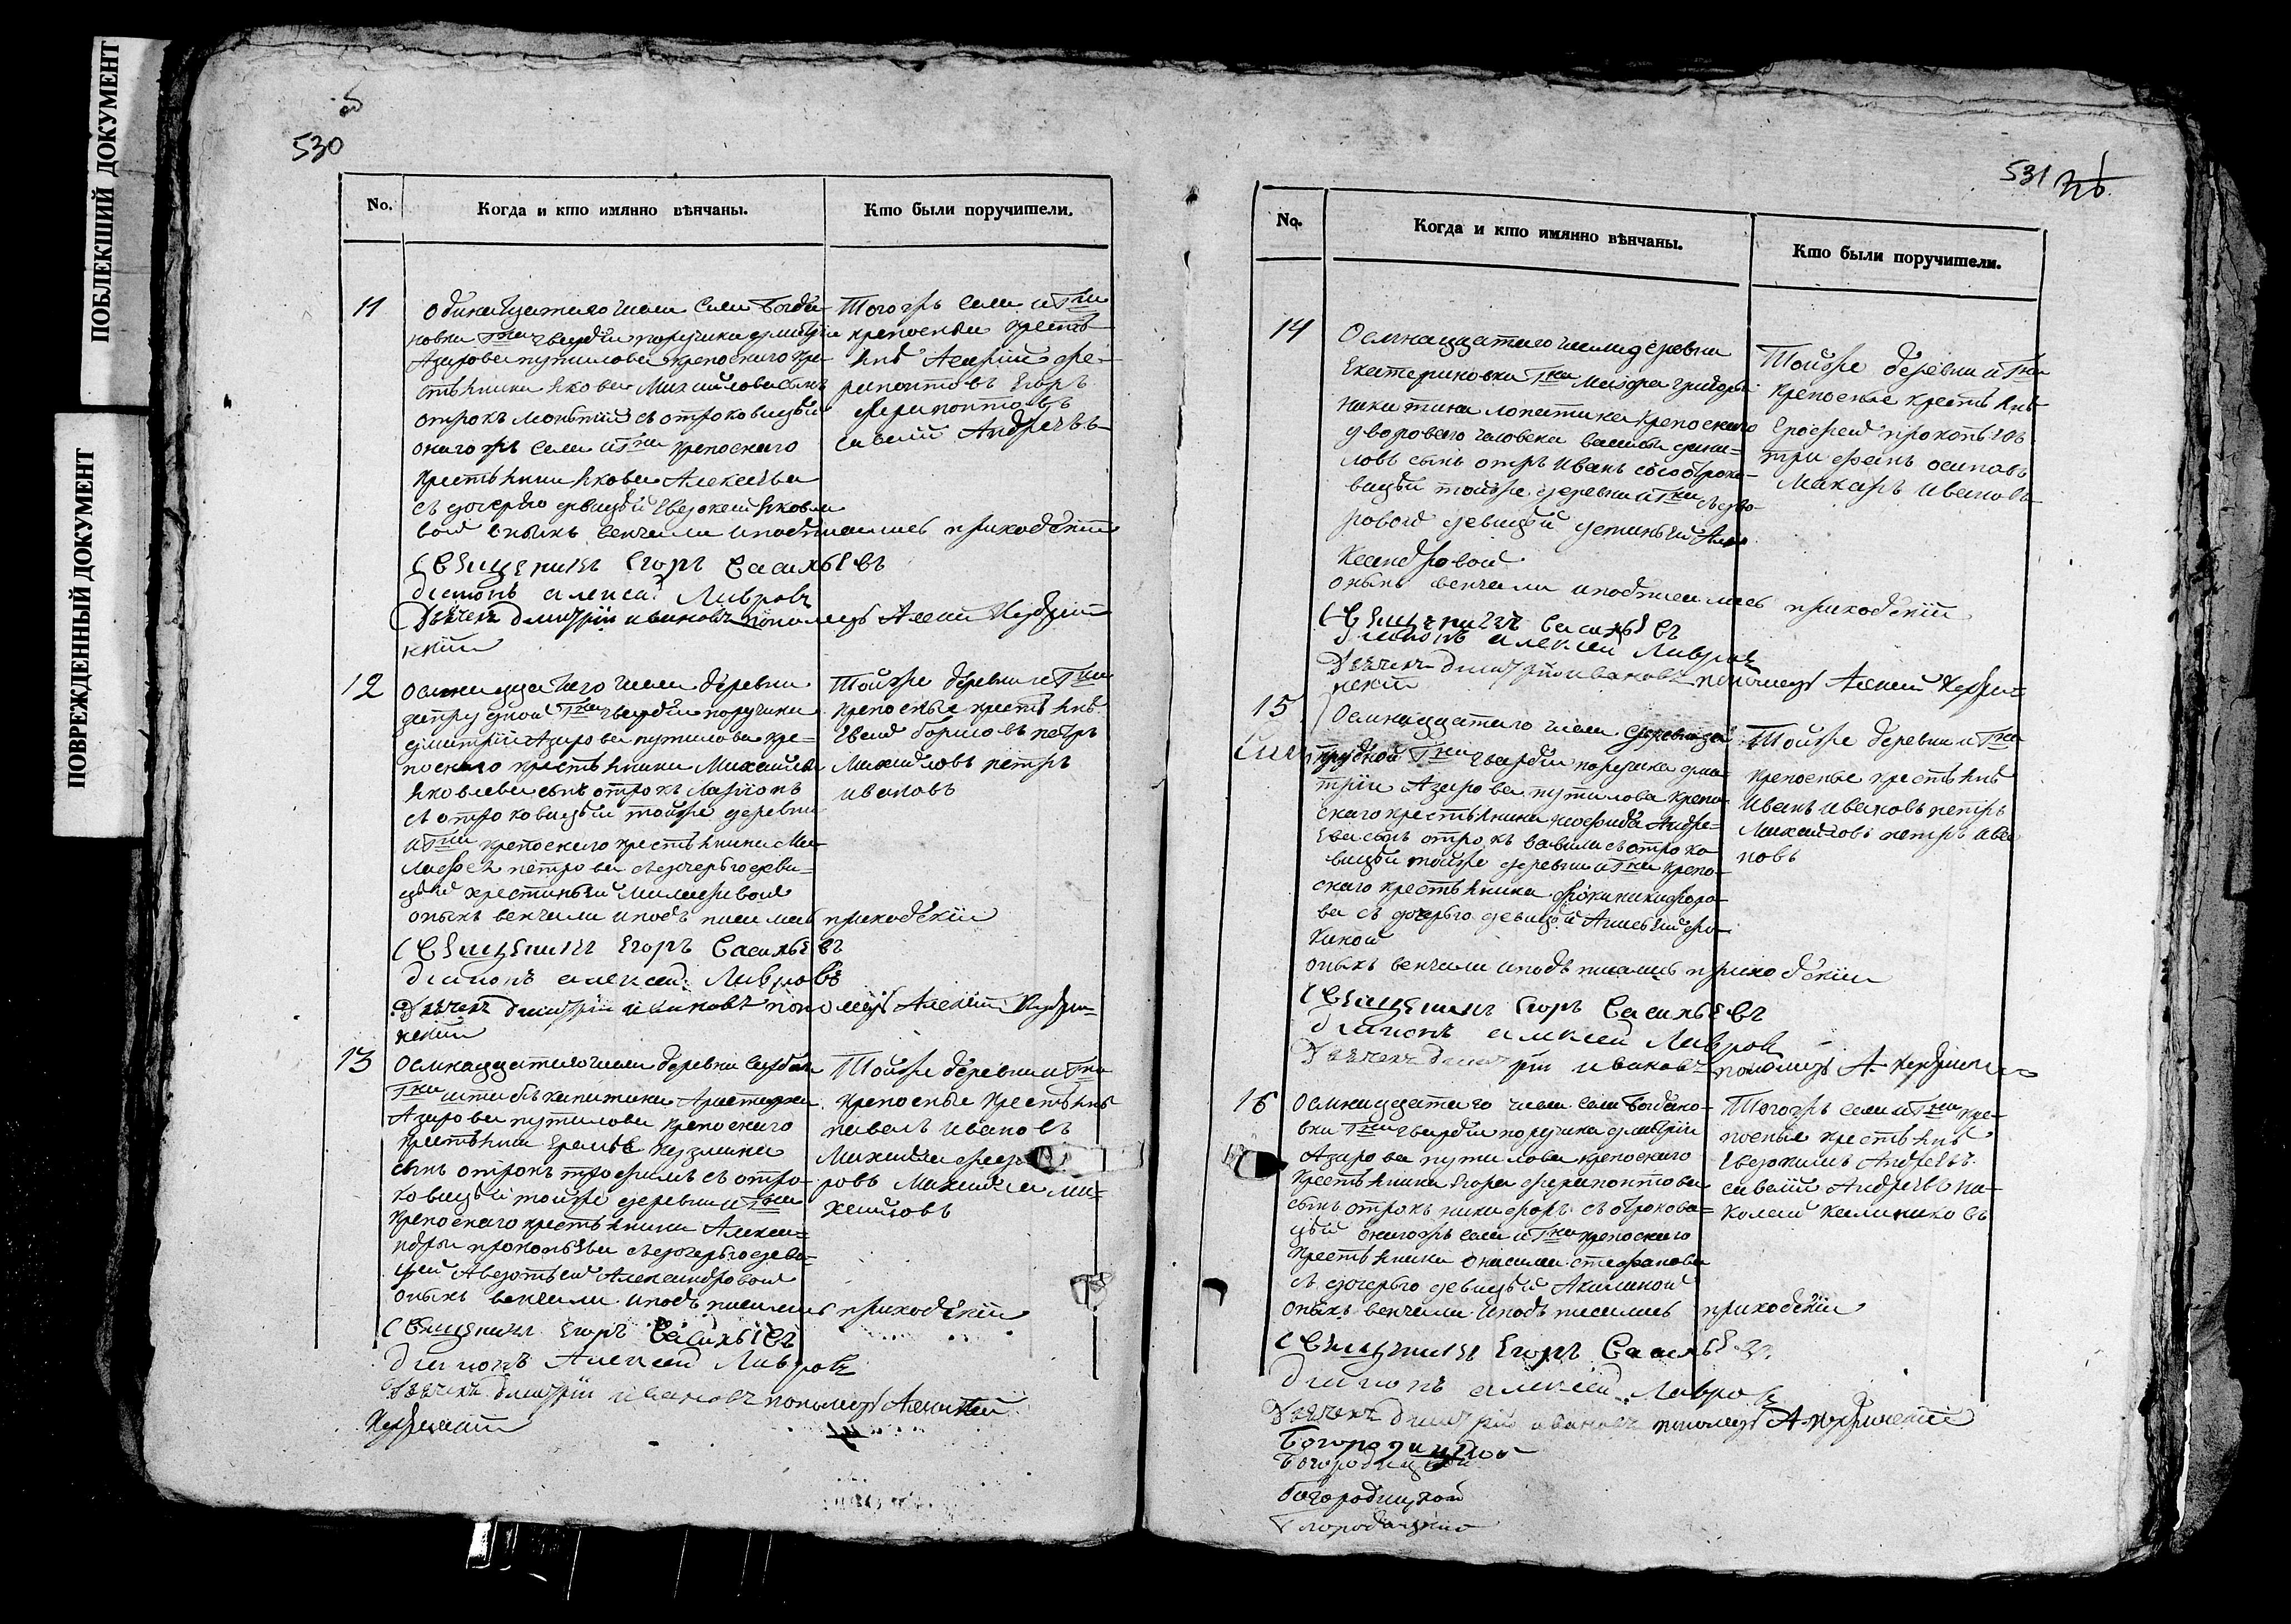 ПОБЛЕКШИЙ ДОКУМЕНТ
ПОВРЕЖДЕННЫЙ ДОКУМЕНТ
530
No. Когда и кто имянно вѣнчаны. Кто были поручители.
11
одинатцатаго числа села Богда-
новки Гна гвардіи порутчика дмитрія
Азарова путилова крепоснаго кре-
стьянина якова Михайлова сынъ
отрокъ с отроковицѣй
онагожъ села и Гна крепоснаго
крестьянина якова Алексѣева
съ дочерью девицѣй Евдокеей яковле
вой оныхъ венчали и подписались приходскіи
Священникъ Егоръ Васильевъ
диаконъ алексей Лавровъ
Дьячекъ дмитрій ивановъ пономарь Алексѣй
Тогожъ села и Гна
крепосныя крестья-
не фе-
рапонтовъ Егоръ
ферапонтовъ
савелий Андреевъ
12
осмнадцатаго числа деревни
запрудной Гна гвардіи порутчика
дмитрія Азарова путилова кре-
поснаго крестьянина Михайла
яковлева сынъ отрокъ Ларіонъ
съ отроковицѣй тойже деревни
и Гна крепоснаго крестьянина Ма-
лафея петрова съ дочерью деви-
цѣй крестиньей Малафевой
оныхъ венчали и подъписались приходскіи
Священникъ Егоръ Васильевъ
диаконъ алексей Лавровъ
Дьячекъ дмитрій ивановъ пономарь Алексѣй
Тойже деревни и Гна
крепосныя крестьяне
борисовъ петръ
Михайловъ петръ
ивановъ
13
осмнадцатаго числа деревни
Гна штабъ капитана Аристарха
Азарова путилова крепоснаго
крестьянина Кузмина
сынъ отрокъ трофимъ с отро-
ковицѣй тойже деревни и Гна
крепоснаго крестьянина Алекса-
ндра прокопьева съ дочерью деви-
цей Авдотьей Александровой
оныхъ венчали и подъписались приходскіи
Священникъ Егоръ Васильевъ
диаконъ Алексей Лавровъ
Дьячекъ дмитрій ивановъ пономарь Алексѣй
Тойже деревни и Гна
крепосныя крестьяне
павелъ ивановъ
Михайла федо
ровъ Михайла ми-
хайловъ
531
No. Когда и кто имянно вѣнчаны. Кто были поручители.
14
Осмнадцатаго числа деревни
Екатериновки Гна Маіора григорья
никитина лопатина крепоснаго
двороваго человека дани-
ловъ сынъ отрокъ Иванъ со отроко-
вицѣй тойже деревни и Гна съ дво-
ровой девицѣй устиньей Але-
ксандровой
оныхъ венчали и подписались приходскіи
Священникъ Васильевъ
диаконъ алексей Лавровъ
Дьячекъ дмитрій ивановъ пономарь Алексѣй
Тойже деревни и Гна
крепосные крестьяне
Ерофей прокопьевъ
трифанъ осиповъ
Макаръ Ивановъ
15
Осмнадцатаго числа деревни за-
прудной Гна гвардіи порутчика дми-
трія Азарова путилова крепо-
снаго крестьянина Андре-
ева сынъ отрокъ вавила съ отроко
вицѣй тойже деревни и Гна крепо-
снаго крестьянина фоки никифоро-
ва съ дочерью девицѣй фо-
киной
оныхъ венчали и подъписались приходскіи
Священникъ Егоръ Васильевъ
диаконъ алексей Лавровъ
Дьячекъ дмитрій ивановъ пономарь А.
Тойже деревни и Гна
крепосные крестьяне
Иванъ Ивановъ петръ
Михайловъ петръ ива
новъ
16
Осмнадцатаго числа села Богдано-
вки Гна гвардіи порутчика дмитрія
Азарова путилова крепоснаго
крестьянина Егора ферапонтова
сынъ отрокъ никифоръ съ отрокови-
цѣй онагожъ села и Гна крепоснаго
крестьянина стефанова
съ дочерью девицѣй Акилиной
оныхъ венчали и подъписались приходскіи
Священникъ Егоръ Васильевъ
диаконъ алексей Лавровъ
Дьячекъ дмитрій ивановъ пономарь А.
Тогожъ села и Гна кре-
посные крестьяне
Евдокимъ Андреевъ
савелий Андреевъ ни-
колай калиниковъ
Богородицкой
Богородицкой
богородицкой